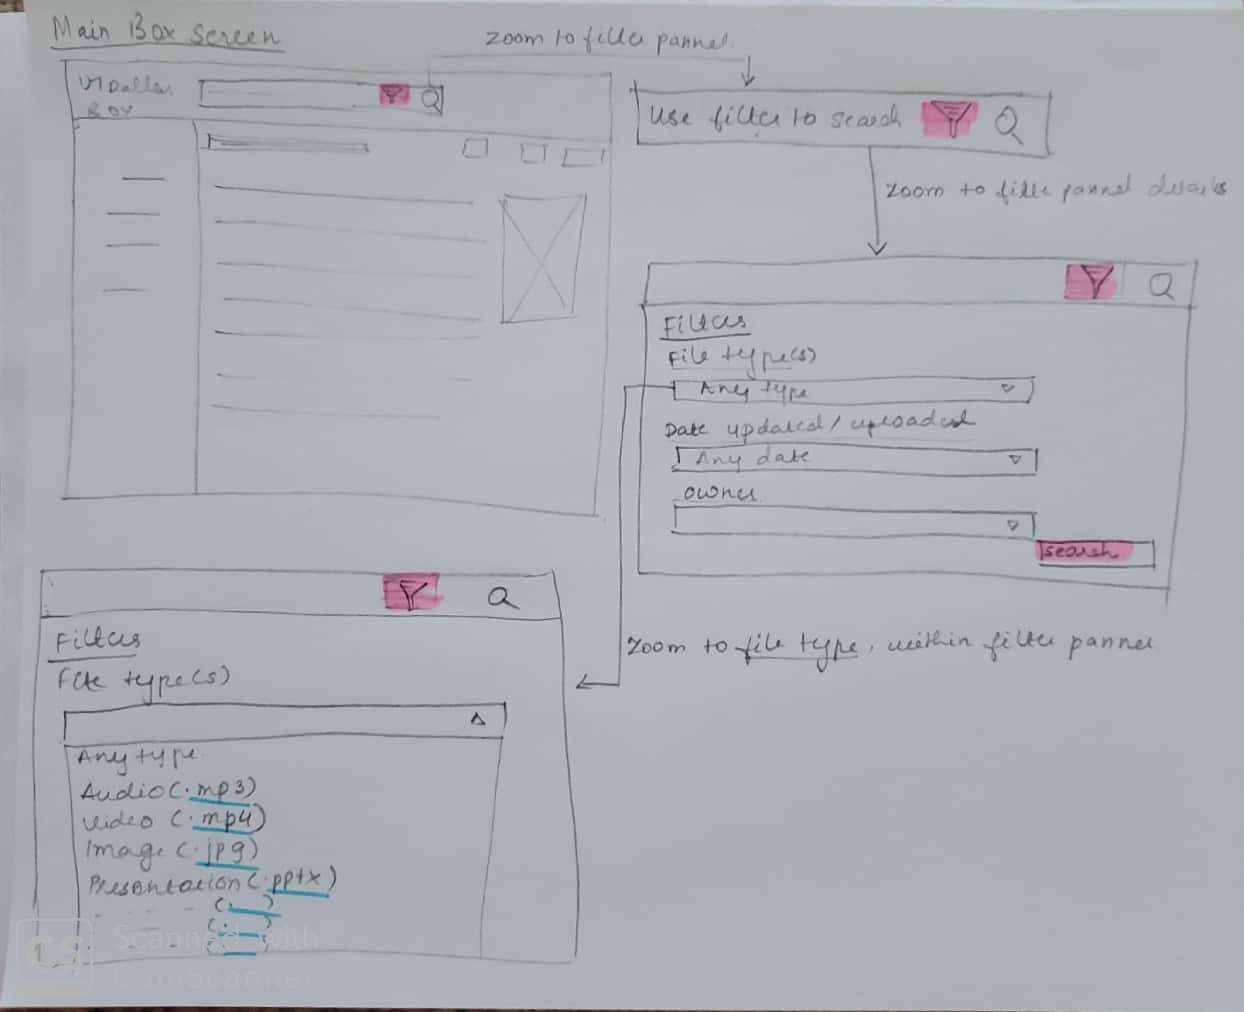 Main Box Screen
zoom to filter pannel.
UTDallas
Box
Use filter to search
zoom to filter pannel details
Filters
File type(s)
Any type
Date updated / uploaded
Any date
owner
search
zoom to file type, within filter pannel
Filters
File type(s)
Any type
Audio (.mp3)
Video (.mp4)
Image (.jpg)
Presentation (.pptx)
(. )
(. )
(. )
CS
Scanned with
CamScanner